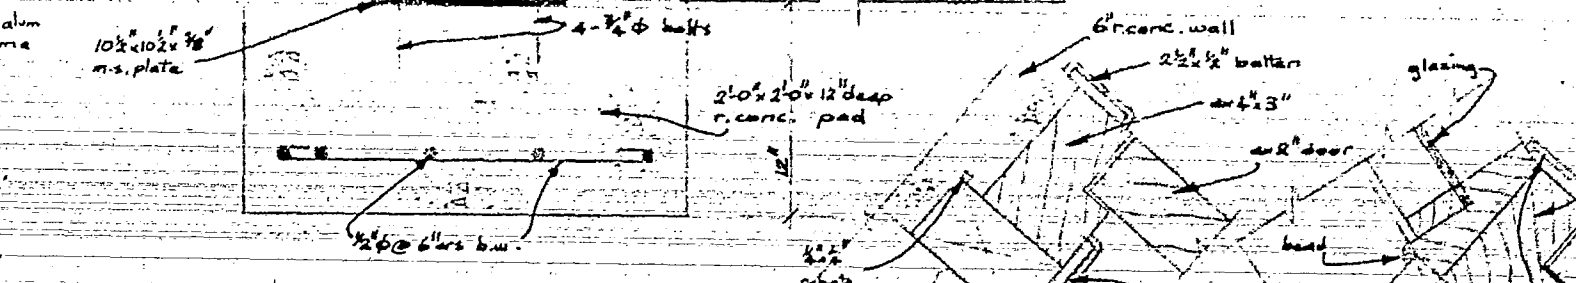 alum
10½"x10½"x⅜"
m.s. plate
4-¾"ϕ bolts
2'-0"x2'-0"x12"deep
r.conc. pad
12"
½"ϕ@ 6"crs b.w.
6"r.conc.wall
2½"x½" batten
ex4"x3"
ex2"door
glazing
bead